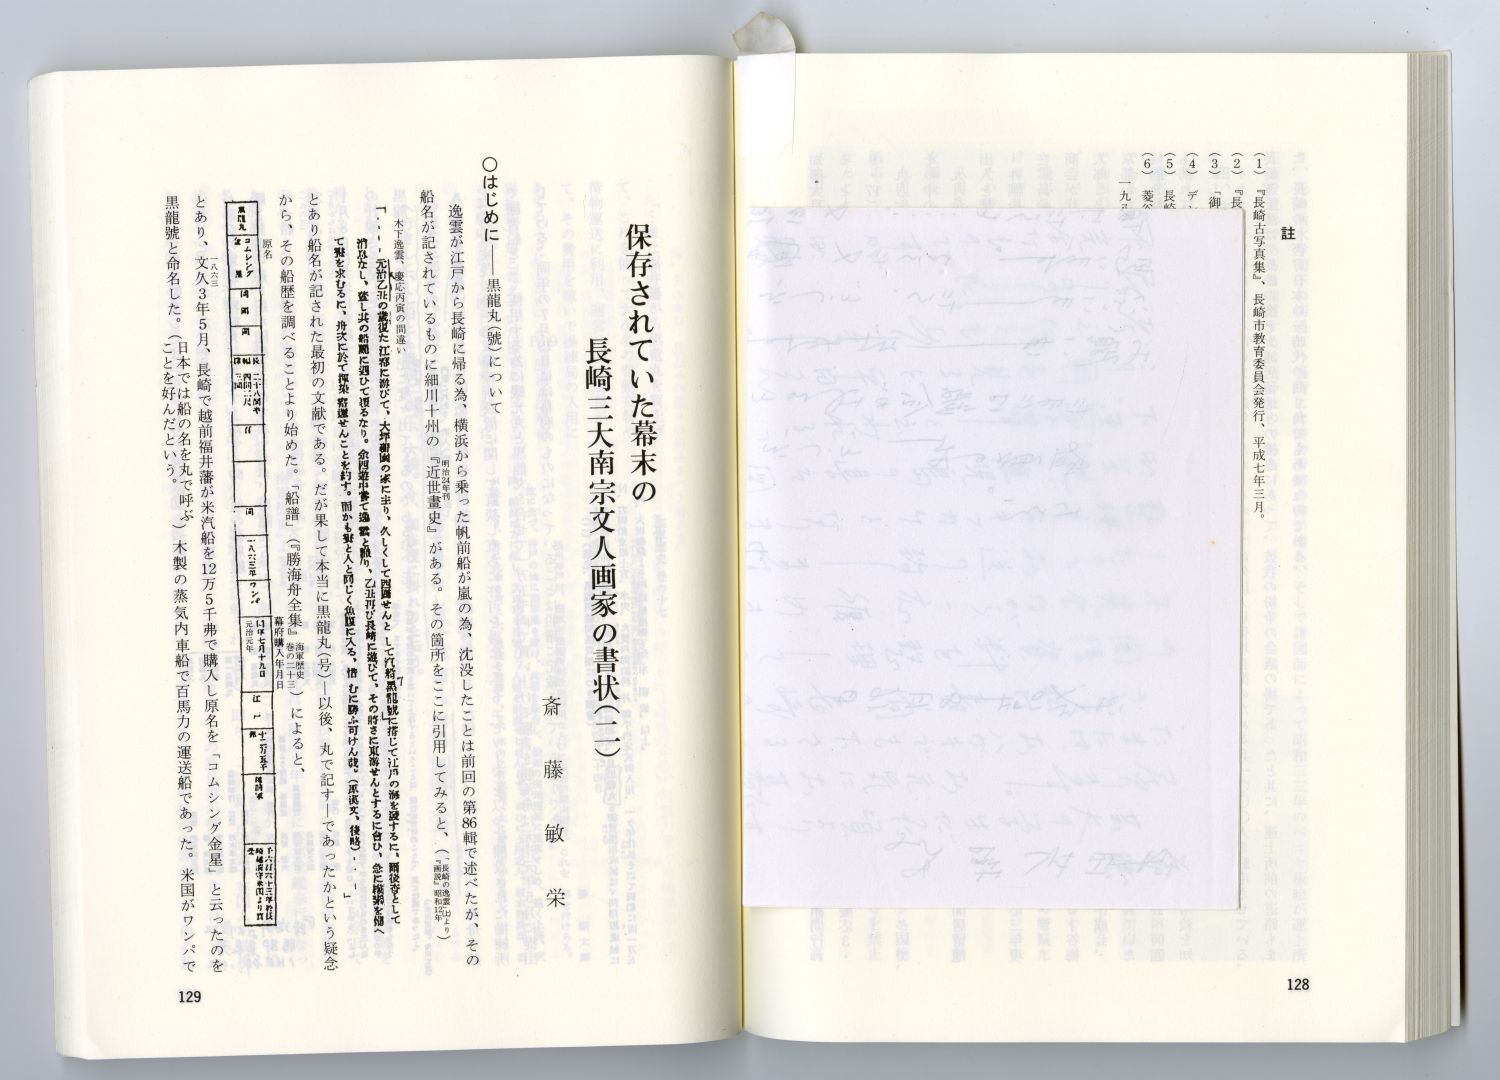 註
(1) 『長崎古写真集』、長崎市教育委員会発行、平成七年三月。
(2) 『長
(3) 「御
(4) デン
(5) 長崎
(6) 菱谷
128
保存されていた幕末の
長崎三大南宗文人画家の書状(二)
斎藤敏栄
○はじめに――黒龍丸(號)について
逸雲が江戸から長崎に帰る為、横浜から乗った帆前船が嵐の為、沈没したことは前回の第86輯で述べたが、その
船名が記されているものに細川十州の『近世畫史』がある。その箇所をここに引用してみると、(「長崎の逸雲(上)より『画説』昭和12年)
明治24年刊
木下逸雲、慶応丙寅の間違い
「・・・元治乙丑の歳復た江都に游びて、大坪
して汽船黒龍號に搭じて江戸の海を發するに、爾後杳として
消息なし、蓋し其の船颶に遇ひて覆るなり。余西遊中嘗て逸雲と識り、乙丑再び長崎に遊びて、その將さに東游せんとするに會ひ、急に
て畫を求むるに、舟次に於て揮染寄還せんことを約す。而かも畫と人と同じく魚腹に入る、惜むに勝ふ可けん哉。(原漢文、後略)・・・」
とあり船名が記された最初の文献である。だが果して本当に黒龍丸(号)―以後、丸で記す―であったかという疑念
から、その船歴を調べることより始めた。「船譜」(『勝海舟全集』海軍歴史巻の二十三)によると、
原名
幕府購入年月日
黒龍丸
コムシング
一八六三年
ワンパ
同年七月十九日
元治元年
江戸
とあり、文久3年5月、長崎で越前福井藩が米汽船を12万5千弗で購入し原名を「コムシング金星」と云ったのを
一八六三
黒龍號と命名した。(日本では船の名を丸で呼ぶことを好んだという。)木製の蒸気内車船で百馬力の運送船であった。米国がワンパで
129